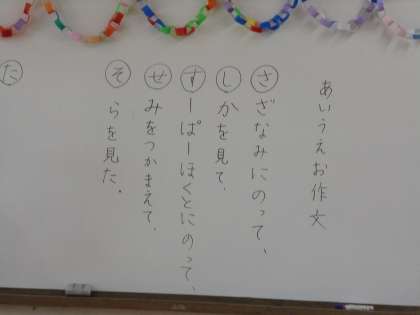 あいうえお作文
さざなみにのって、
しかを見て、
すーぱーほくとにのって、
せみをつかまえて、
そらを見た。
た